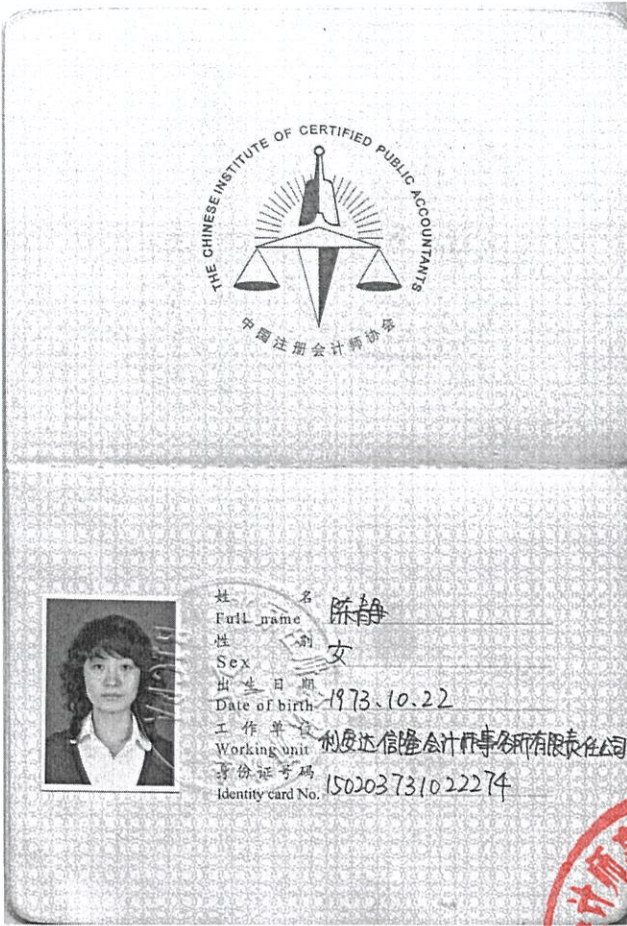 THE CHINESE INSTITUTE OF CERTIFIED PUBLIC ACCOUNTANTS
中国注册会计师协会
姓 名
Full name 陈静
性 别
Sex 女
出生日期
Date of birth 1973.10.22
工作单位
Working unit 利安达信隆会计师事务所有限责任公司
身份证号码
Identity card No. 150203731022274
计师